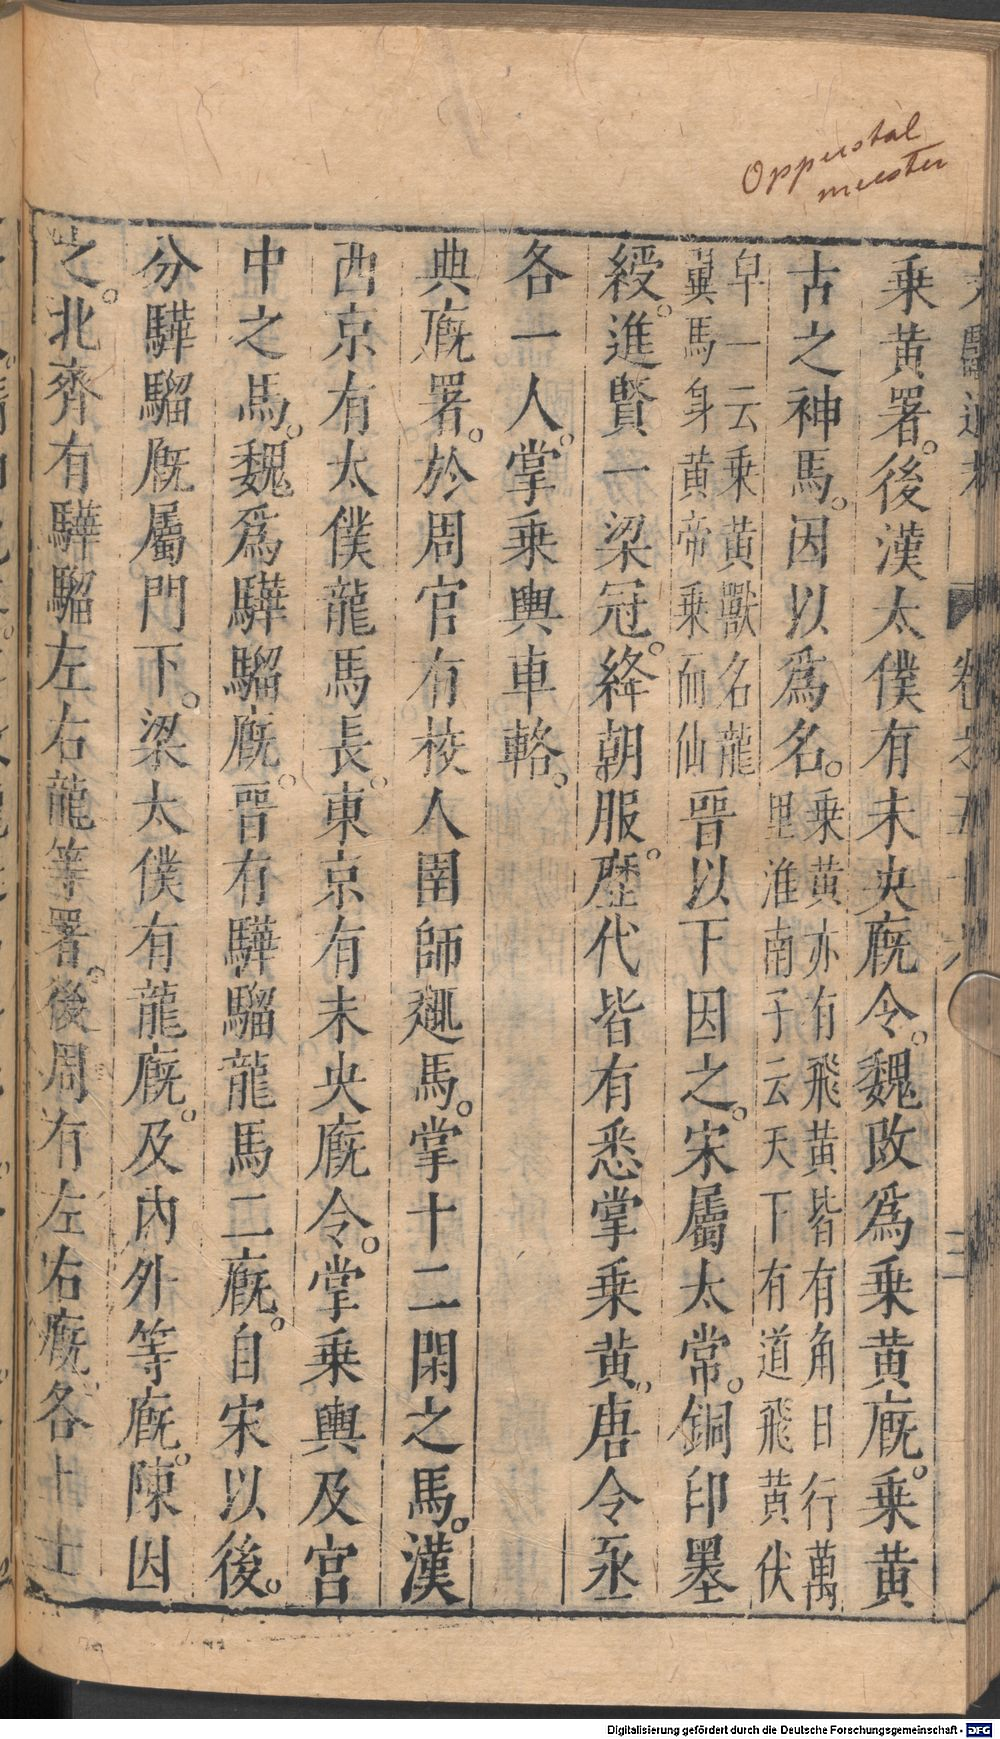 Opperstal
meester
乘黃署。後漢太僕有未央廐令。魏改爲乘黃廐。乘黃
古之神馬。因以爲名。乘黃亦有飛黃皆有角日行萬
里淮南子云天下有道飛黃伏
皁一云乘黃獸名龍
翼馬身黃帝乘而仙
晉以下因之。宋屬太常。銅印墨
綬。進賢一梁冠。絳朝服。歷代皆有悉掌乘黃。唐令丞
各一人。掌乘輿車輅。
典廐署。於周官有校人圉師趣馬。掌十二閑之馬。漢
西京有太僕龍馬長。東京有未央廐令。掌乘輿及宮
中之馬。魏爲驊騮廐。晉有驊騮龍馬二廐。自宋以後。
分驊騮廐屬門下。梁太僕有龍廐。及內外等廐。陳因
之。北齊有驊騮左右龍等署。後周有左右廐。各上士
卷之五十
三
Digitalisierung gefördert durch die Deutsche Forschungsgemeinschaft - DFG